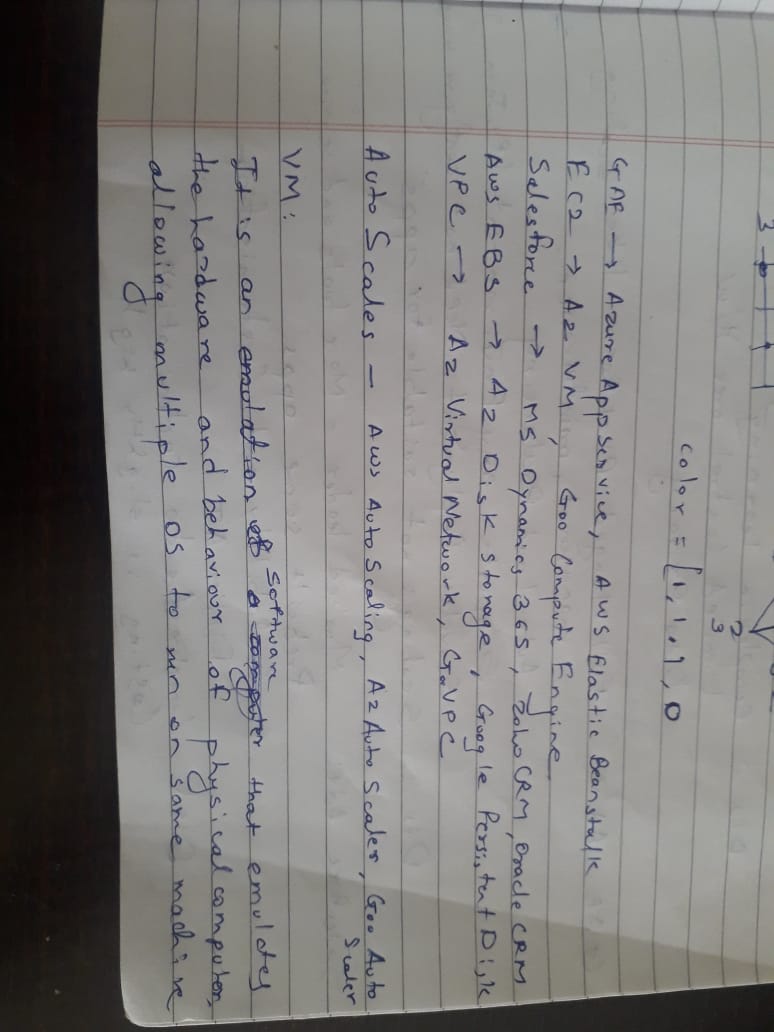 3
2
3
color = [1, 1, 1, 0
GAE → Azure App Service, AWS Elastic Beanstalk
EC2 → Az VM, Goo Compute Engine
Salesforce → MS Dynamics 365, Zoho CRM, Oracle CRM
AWS EBS → Az Disk Storage, Google Persistent Disk
VPC → Az Virtual Network, G VPC
Auto Scales - AWS Auto Scaling, Az Auto Scaler, Goo Auto
Scaler
VM:
It is an emulation of a computer software that emulates
the hardware and behaviour of physical computer,
allowing multiple OS to run on same machine